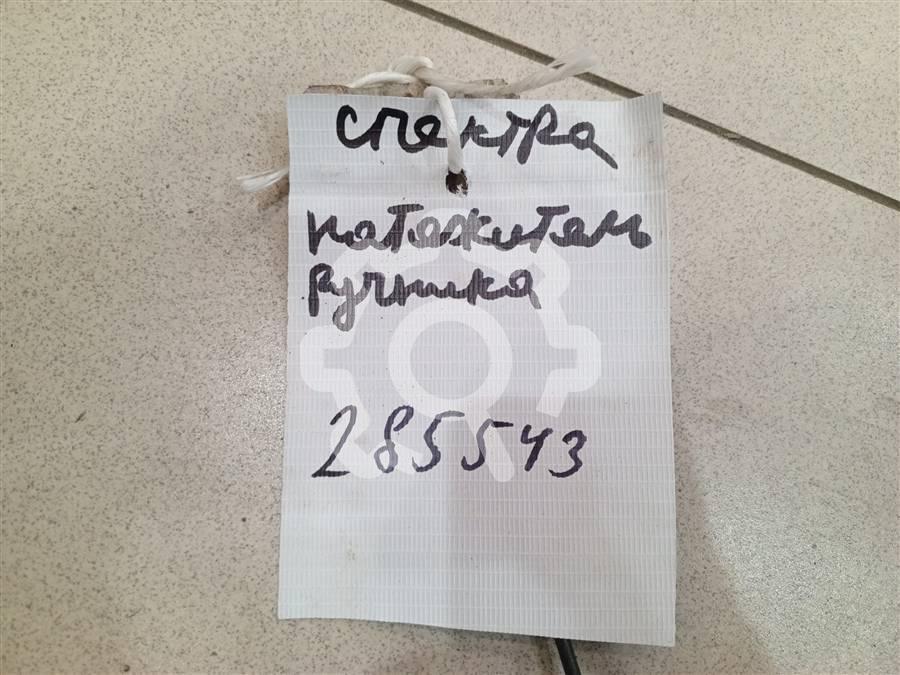 спектра
натяжитель
ручника
285543